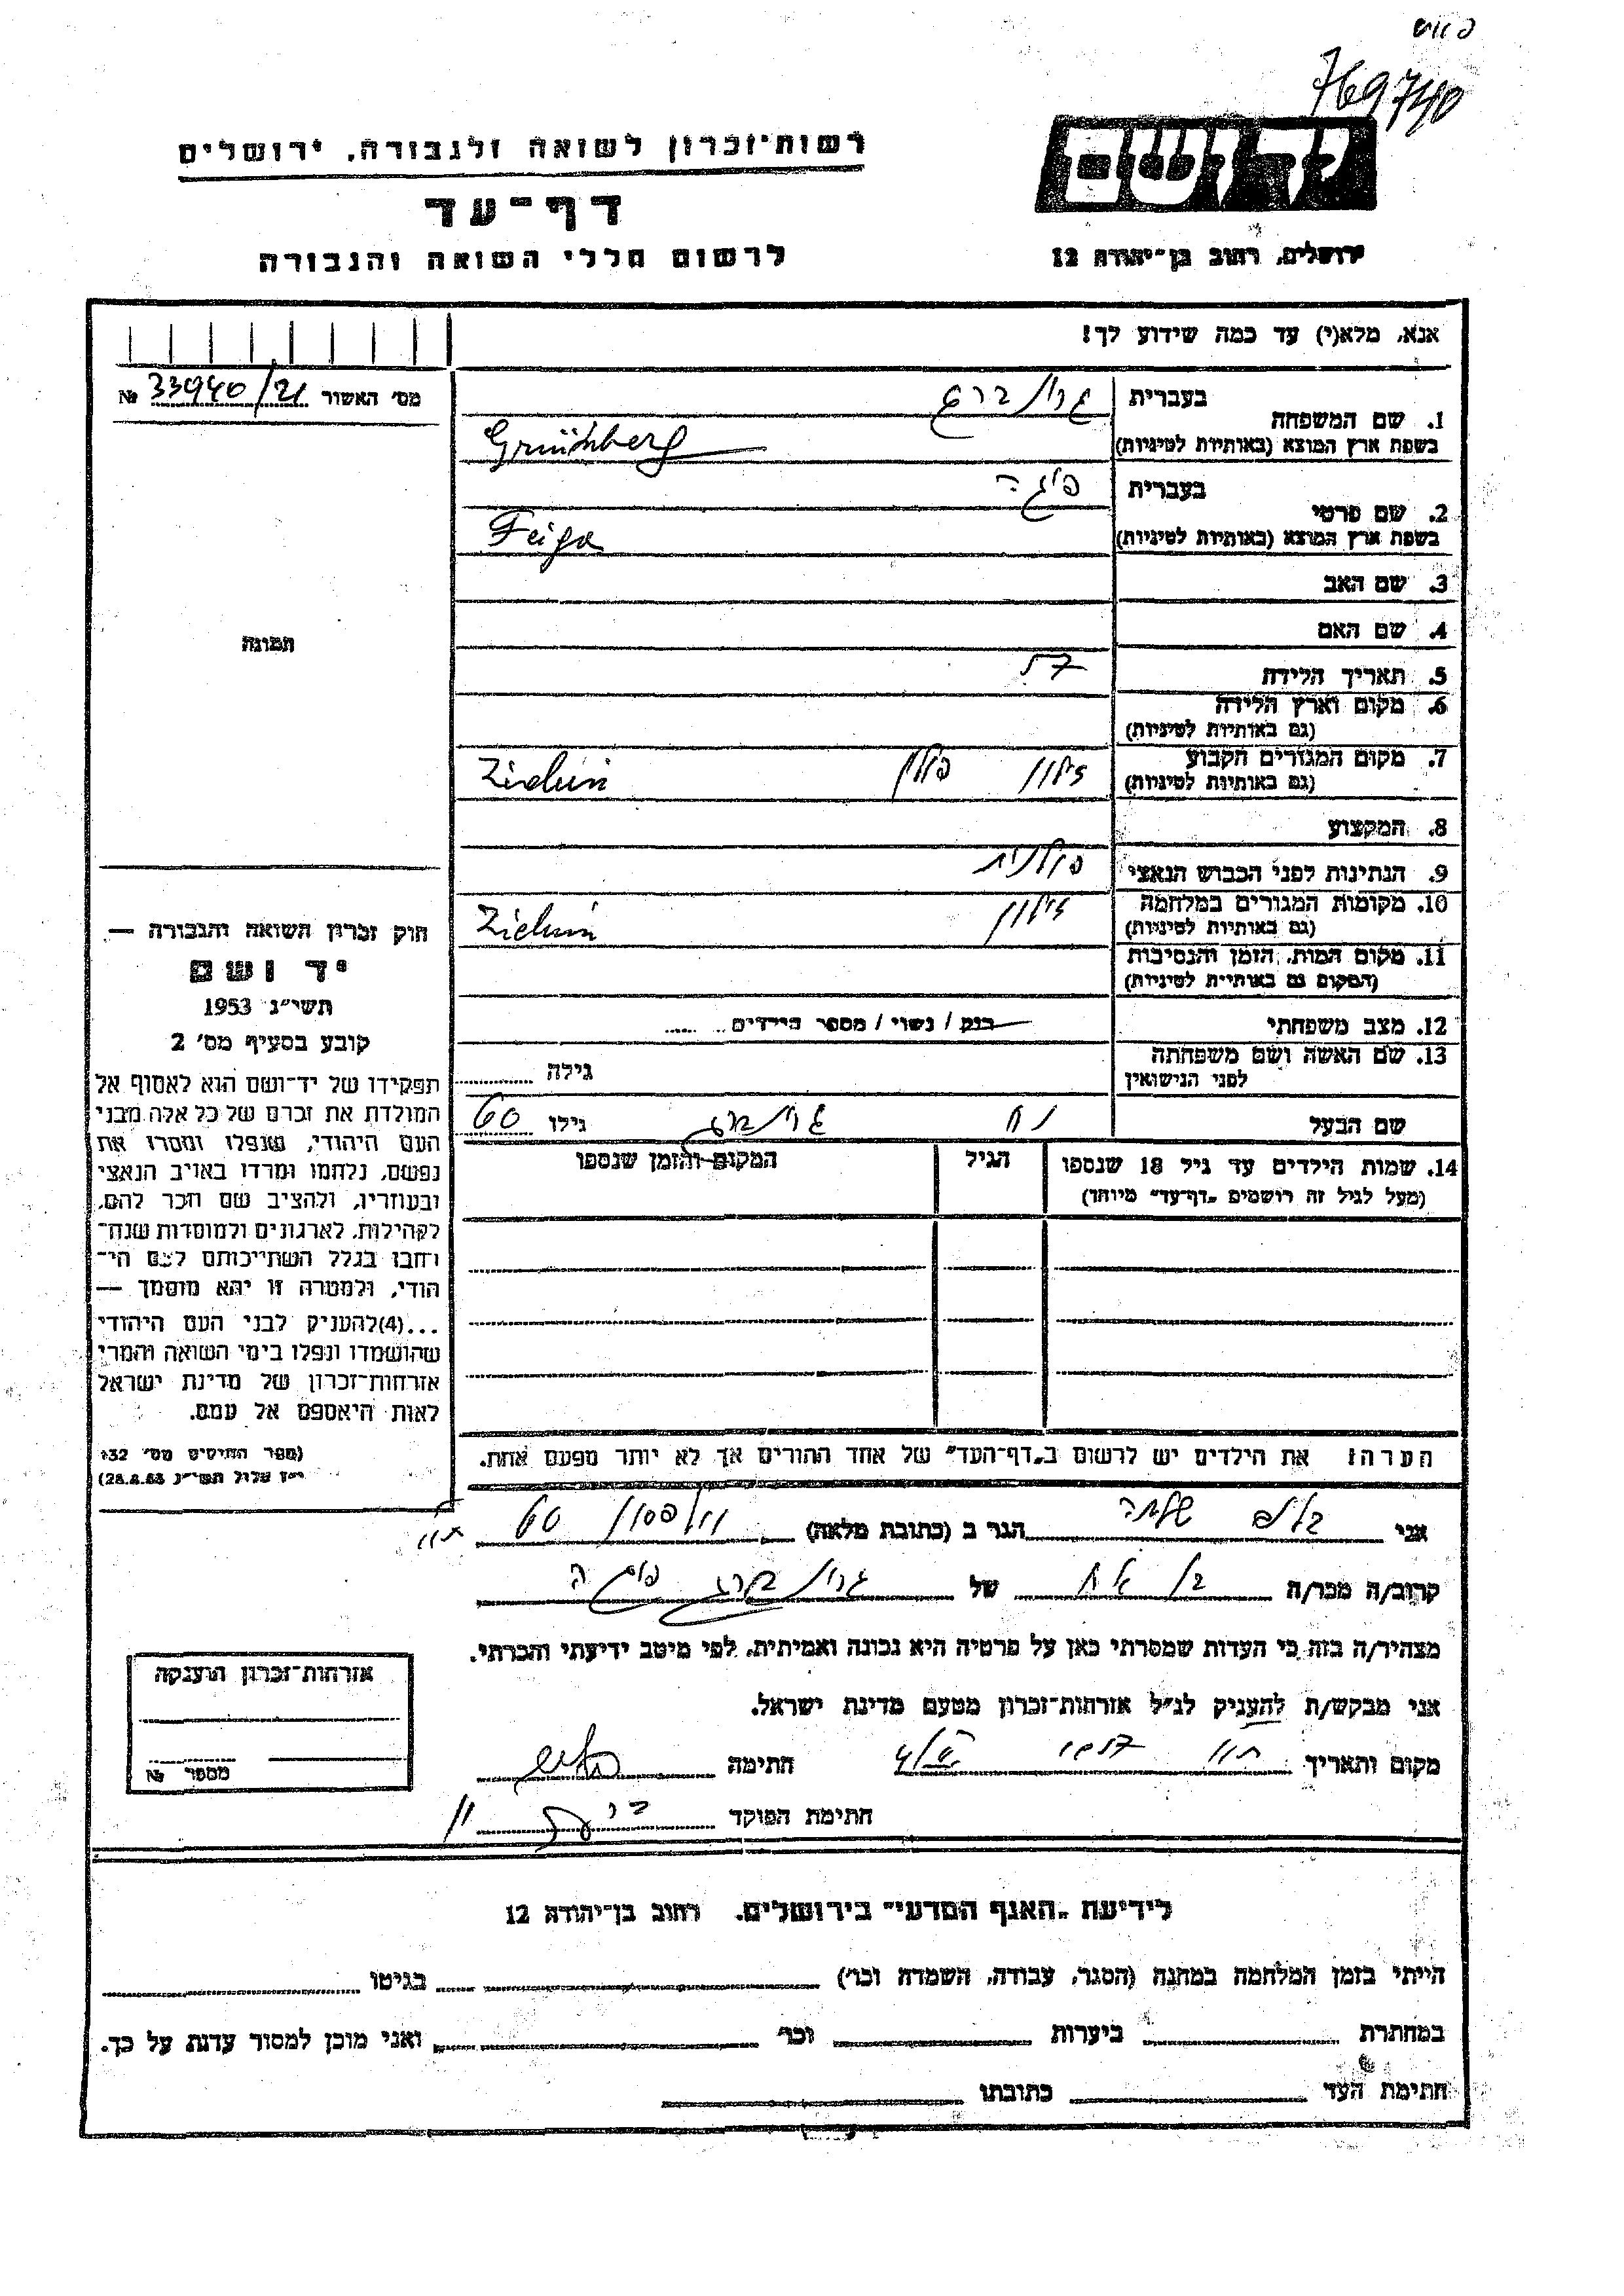 769740
רשות־זכרון לשואה ולגבורה, ירושלים
ידושם
דף־עד
לרשום חללי השואה והגבורה
ירושלים, רחוב בן־יהודה 12
אנא, מלא(י) עד כמה שידוע לך!
מס׳ האשור 33940/21 №
בעברית גרינברג
1. שם המשפחה
בשפת ארץ המוצא (באותיות לטיניות) Grünberg
בעברית פיגה
2. שם פרטי
בשפת ארץ המוצא (באותיות לטיניות) Feiga
3. שם האב
4. שם האם
תמונה
5. תאריך הלידה 57
6. מקום וארץ הלידה
(גם באותיות לטיניות)
7. מקום המגורים הקבוע פולין Zielun
(גם באותיות לטיניות)
8. המקצוע
9. הנתינות לפני הכבוש הנאצי פולנית
10. מקומות המגורים במלחמה Zielun
(גם באותיות לטיניות)
11. מקום המות, הזמן והנסיבות
(המקום גם באותיות לטיניות)
12. מצב משפחתי רווק / נשוי / מספר הילדים
13. שם האשה ושם משפחתה גילה
לפני הנישואין
שם הבעל נח גרינברג גילו 60
14. שמות הילדים עד גיל 18 שנספו הגיל המקום והזמן שנספו
(מעל לגיל זה רושמים „דף־עד״ מיוחד)
חוק זכרון השואה והגבורה —
יד ושם
תשי״ג 1953
קובע בסעיף מס׳ 2
תפקידו של יד־ושם הוא לאסוף אל
המולדת את זכרם של כל אלה מבני
העם היהודי, שנפלו ומסרו את
נפשם, נלחמו ומרדו באויב הנאצי
ובעוזריו, ולהציב שם וזכר להם,
לקהילות, לארגונים ולמוסדות שנח־
רחבו בגלל השתייכותם לעם הי־
הודי, ולמטרה זו יהא מוסמך —
...(4)להעניק לבני העם היהודי
שהושמדו ונפלו בימי השואה והמרי
אזרחות־זכרון של מדינת ישראל
לאות היאספם אל עמם.
(ספר החוקים מס׳ 132
י״ז אלול תשי״ג 28.8.53)
הערה: את הילדים יש לרשום ב„דף־העד״ של אחד ההורים אך לא יותר מפעם אחת.
אני שלמה הגר ב (כתובת מלאה) וולפסון 60
קרוב/ה מכר/ה בן אח של גרינברג פיגה
מצהיר/ה בזה כי העדות שמסרתי כאן על פרטיה היא נכונה ואמיתית, לפי מיטב ידיעתי והכרתי.
אני מבקש/ת להעניק לנ״ל אזרחות־זכרון מטעם מדינת ישראל.
מקום ותאריך חתימה
חתימת הפוקד
אזרחות־זכרון הוענקה
מספר №
לידיעת „האגף המדעי״ בירושלים. רחוב בן־יהודה 12
הייתי בזמן המלחמה במחנה (הסגר, עבודה, השמדה וכו׳) בגיטו
במחתרת ביערות וכו׳ ואני מוכן למסור עדות על כך.
חתימת העד כתובתו